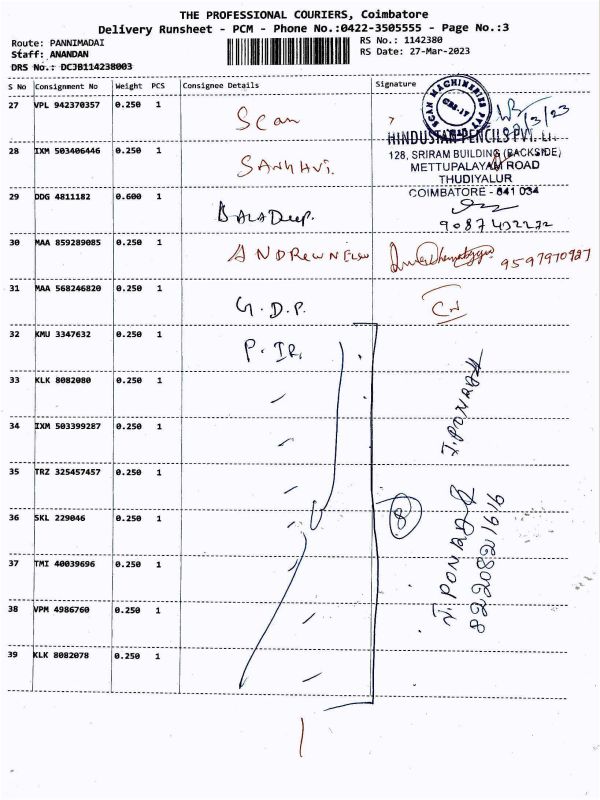 THE PROFESSIONAL COURIERS, Coimbatore
Delivery Runsheet - PCM - Phone No.:0422-3505555 - Page No.:3
Route: PANNIMADAI
RS No.: 1142380
Staff: ANANDAN
RS Date: 27-Mar-2023
DRS No.: DCJB114238003
S No Consignment No Weight PCS Consignee Details Signature
27 VPL 942370357 0.250 1 Scan
SCAN MACHINERIES PVT
/3/23
HINDUSTAN PENCILS PVT. LT
28 IXM 503406446 0.250 1 SANGHVI.
128, SRIRAM BUILDING (BACKSIDE)
METTUPALAYAM ROAD
THUDIYALUR
COIMBATORE - 641 034
29 DDG 4811182 0.600 1 BALADeep.
9087432272
30 MAA 859289085 0.250 1 ANDREWNELW 9597970927
31 MAA 568246820 0.250 1 G.D.P.
32 KMU 3347632 0.250 1 P. IR.
33 KLK 8082080 0.250 1 "
34 IXM 503399287 0.250 1 "
35 TRZ 325457457 0.250 1 "
36 SKL 229046 0.250 1 "
8
37 TMI 40039696 0.250 1
38 VPM 4986760 0.250 1
39 KLK 8082078 0.250 1
J. PONRAJ
J. PONRAJ
8220821616